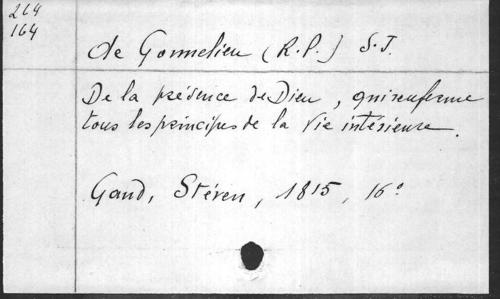 264
164
de Gonnelieu (R.P.) S.J.
De la présence de Dieu, qui renferme
tous les principes de la vie intérieure.
Gand, Stéven, 1815, 16°